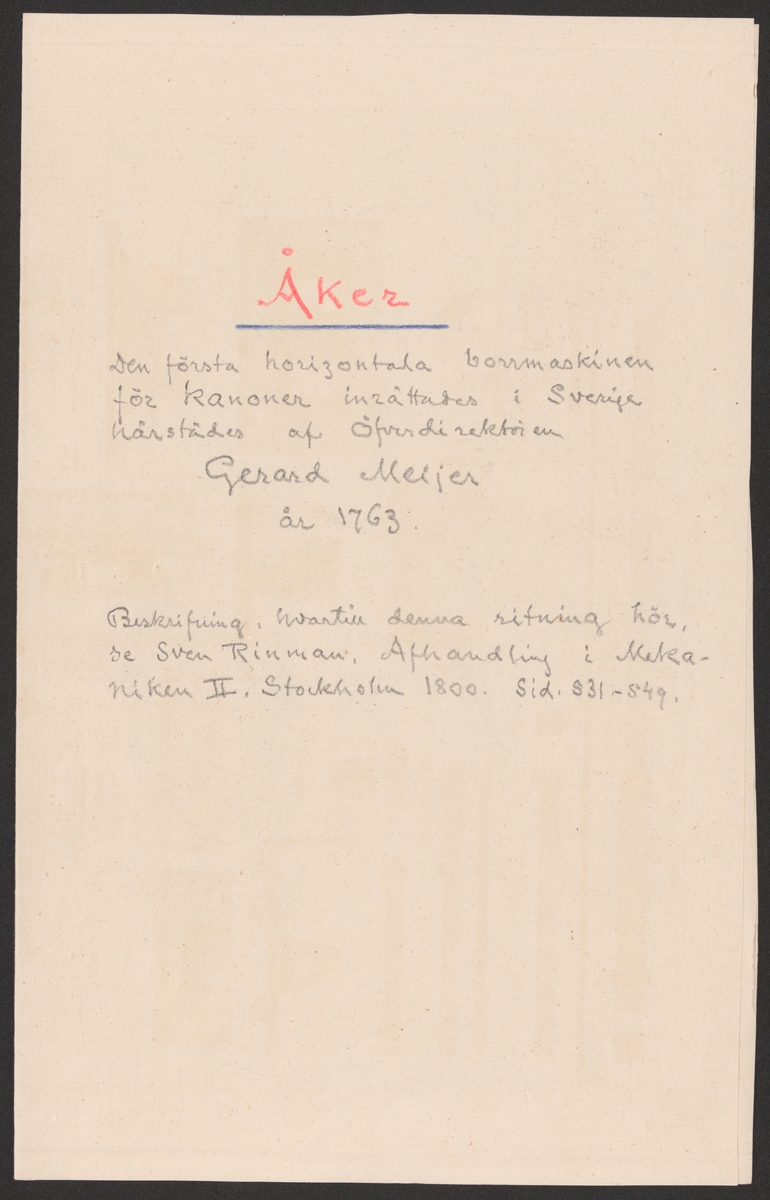 Åker
Den första horizontala borrmaskinen
för kanoner inrättades i Sverige
härstädes af Öfverdirektören
Gerard Meijer
år 1763.
Beskrifning, hvartill denna ritning hör,
se Sven Rinman, Afhandling i Meka-
niken II. Stockholm 1800. Sid. 531-549.